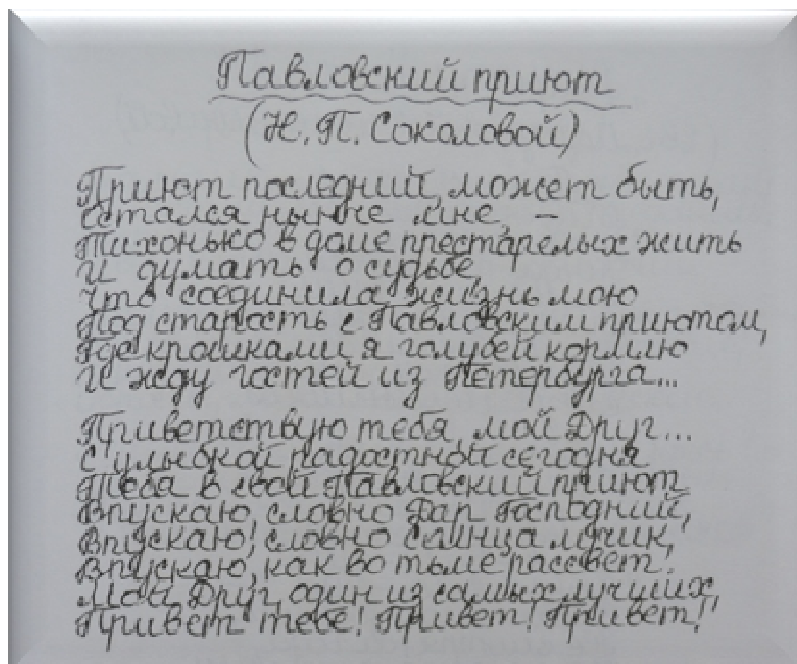 Павловский приют
(Н. П. Соколовой)
Приют последний, может быть,
остался нынче мне, –
Тихонько в доме престарелых жить
и думать о судьбе,
что соединила жизнь мою
Под старость с Павловским приютом,
Где крошками я голубей кормлю
и жду гостей из Петербурга...
Приветствую тебя, мой Друг...
с улыбкой радостной сегодня
Тебя в свой Павловский приют
впускаю, словно Дар Господний,
впускаю, словно солнца лучик,
впускаю, как во тьме рассвет.
Мой Друг, один из самых лучших,
Привет тебе! Привет! Привет!